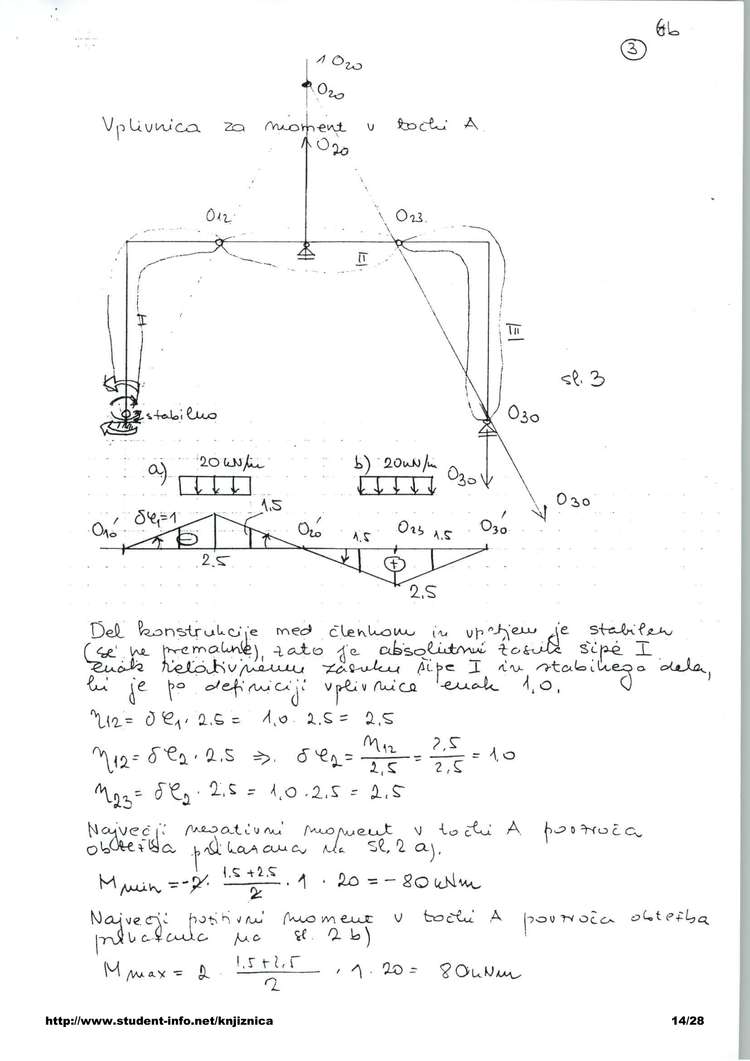 6b
3
1 O20
O20
Vplivnica za moment v točki A.
O20
O12
O23
II
I
III
sl. 3
stabilno
O30
a)
20 kN/m
b) 20 kN/m
O30
O30
O10' δφ1=1
1.5
O20'
1.5 O23 1.5
O30'
⊖
2.5
⊕
2.5
Del konstrukcije med členkom in vpetjem je stabilen
(se ne premakne), zato je absolutni zasuk šipe I
enak relativnemu zasuku šipe I in stabilnega dela,
ki je po definiciji vplivnice enak 1,0.
η12 = δφ1 · 2.5 = 1,0 · 2.5 = 2.5
η12 = δφ2 · 2.5 ⇒ δφ2 = η12/2,5 = 2,5/2,5 = 1,0
η23 = δφ2 · 2.5 = 1,0 · 2.5 = 2.5
Največji negativni moment v točki A povzroča
obtežba prikazana na sl. 2 a).
Mmin = -2 · (1.5 + 2.5)/2 · 1 · 20 = -80 kNm
Največji pozitivni moment v točki A povzroča obtežba
prikazana na sl. 2 b)
Mmax = 2 · (1,5 + 2,5)/2 · 1 · 20 = 80 kNm
http://www.student-info.net/knjiznica
14/28